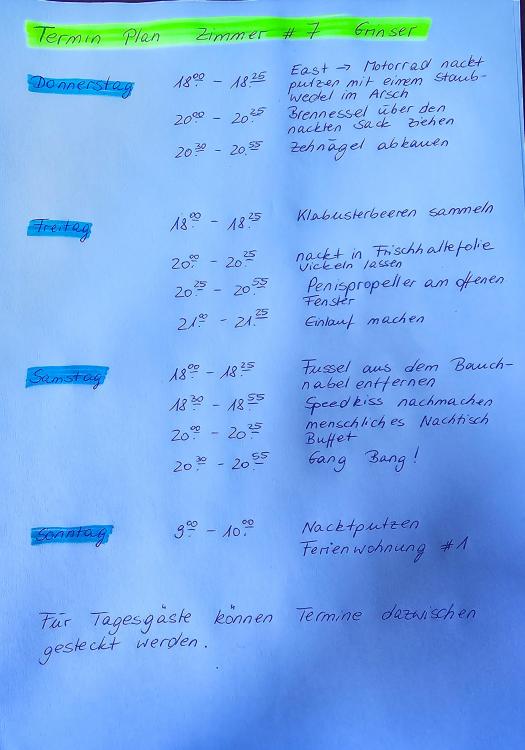 Termin Plan Zimmer # 7 Grinser
Donnerstag 18⁰⁰ - 18²⁵ East → Motorrad nackt
putzen mit einem Staub-
wedel im Arsch
20⁰⁰ - 20²⁵ Brennessel über den
nackten Sack ziehen
20³⁰ - 20⁵⁵ Zehnägel abkauen
Freitag 18⁰⁰ - 18²⁵ Klabusterbeeren sammeln
20⁰⁰ - 20²⁵ nackt in Frischhaltefolie
wickeln lassen
20²⁵ - 20⁵⁵ Penispropeller am offenen
Fenster
21⁰⁰ - 21²⁵ Einlauf machen
Samstag 18⁰⁰ - 18²⁵ Fussel aus dem Bauch-
nabel entfernen
18³⁰ - 18⁵⁵ Speedkiss nachmachen
20⁰⁰ - 20²⁵ menschliches Nachtisch
Buffet
20³⁰ - 20⁵⁵ Gang Bang!
Sonntag 9⁰⁰ - 10⁰⁰ Nacktputzen
Ferienwohnung #1
Für Tagesgäste können Termine dazwischen
gesteckt werden.